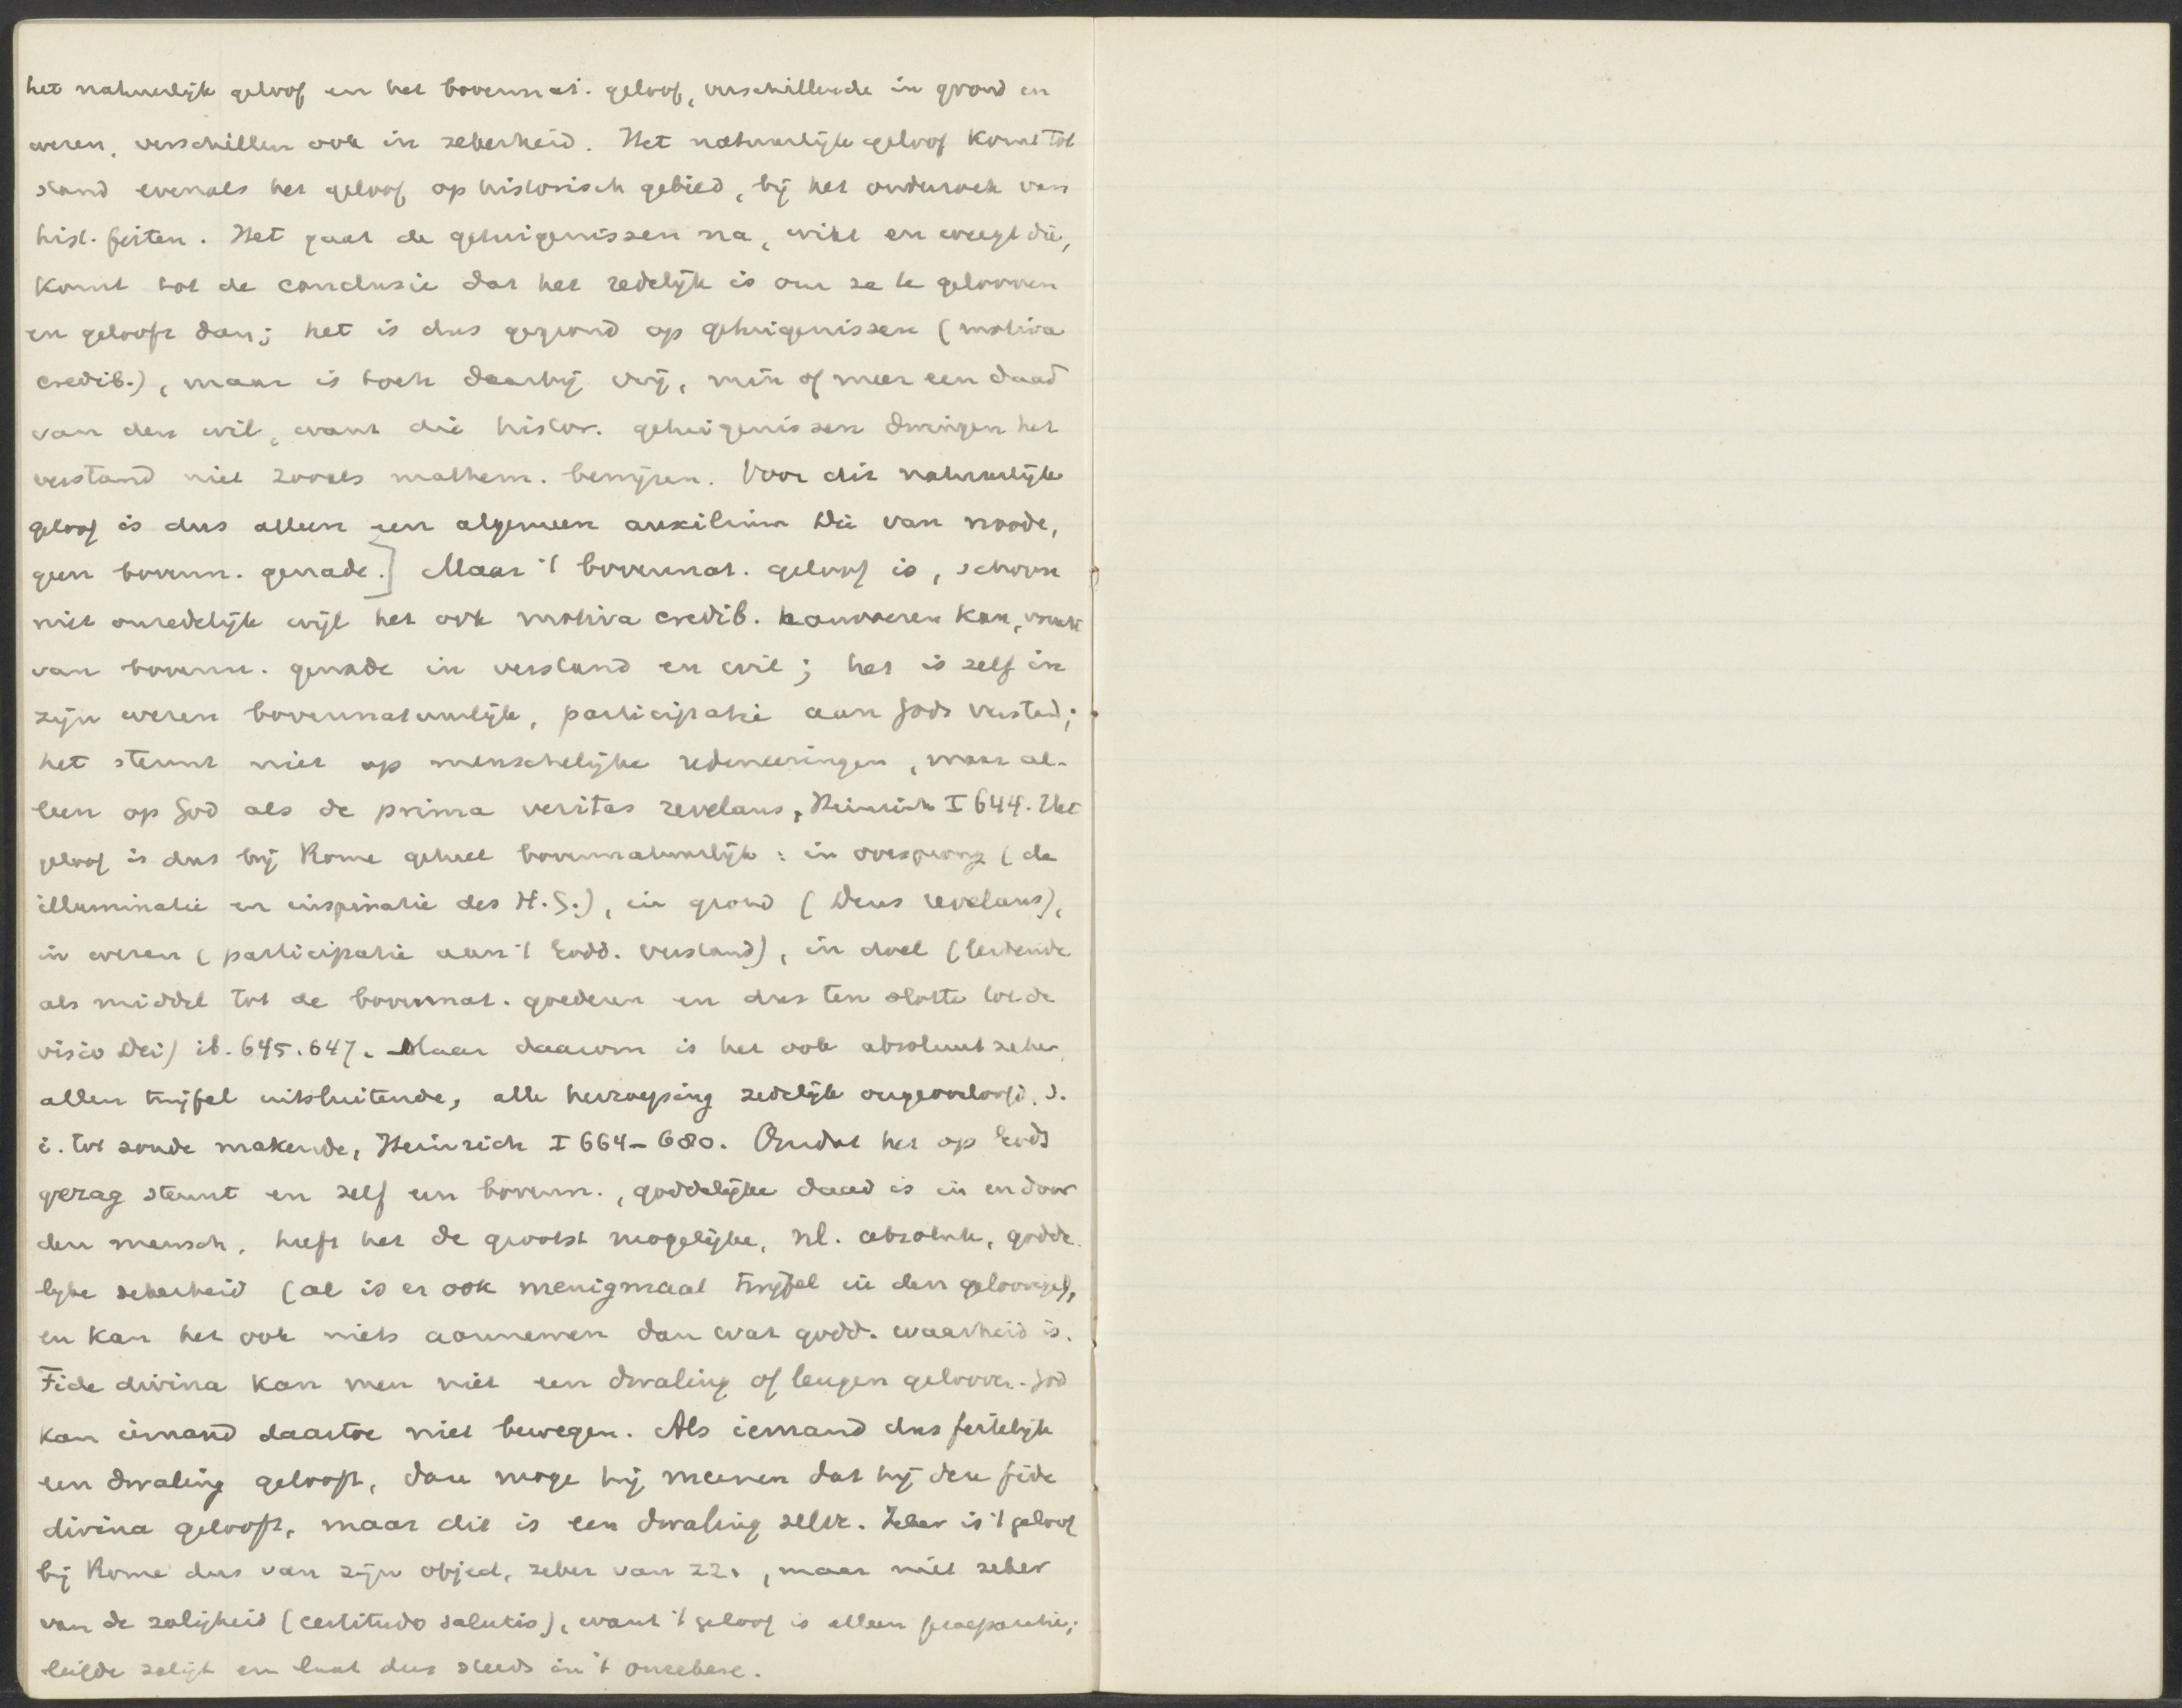 het natuurlijk geloof en het bovennat. geloof, verschillende in grond en
wezen, verschillen ook in zekerheid. Het natuurlijk geloof komt tot
stand evenals het geloof op historisch gebied, bij het onderzoek van
hist. feiten. Het gaat de getuigenissen na, wikt en weegt die,
komt tot de conclusie dat het redelijk is om ze te gelooven
en gelooft dan; het is dus gegrond op getuigenissen (motiva
credib.), maar is toch daarbij vrij, min of meer een daad
van den wil, want die histor. getuigenissen dwingen het
verstand niet zooals mathem. bewijzen. Voor dit natuurlijk
geloof is dus alleen een algemeen auxilium Dei van noode,
geen bovenn. genade.] Maar 't bovennat. geloof is, schoon
niet onredelijk wijl het ook motiva credib. aanvoeren kan, vrucht
van bovenn. genade in verstand en wil; het is zelf in
zijn wezen bovennatuurlijk, participatie aan Gods verstand;
het steunt niet op menschelijke redeneeringen, maar al-
leen op God als de prima veritas revelans, Heinrich I 644. Het
geloof is dus bij Rome geheel bovennatuurlijk: in oorsprong (de
illuminatie en inspiratie des H.G.), in grond (Deus revelans),
in wezen (participatie aan 't Godd. verstand), in doel (leidende
als middel tot de bovennat. goederen en dus ten slotte tot de
visio Dei) ib. 645.647. Maar daarom is het ook absoluut zeker,
allen twijfel uitsluitende, alle herroeping zedelijk ongeoorloofd, d.
i. tot zonde makende, Heinrich I 664-680. Omdat het op Gods
gezag steunt en zelf een bovenn., goddelijke daad is in en door
den mensch, heeft het de grootst mogelijke, nl. absolute, godde-
lijke zekerheid (al is er ook menigmaal twijfel in den geloovige),
en kan het ook niets aannemen dan wat godd. waarheid is.
Fide divina kan men niet een dwaling of leugen gelooven. God
kan iemand daartoe niet bewegen. Als iemand dus feitelijk
een dwaling gelooft, dan moge hij meenen dat hij den fide
divina gelooft, maar dit is een dwaling zelve. Zeker is 't geloof
bij Rome dus van zijn object, zeker van zz., maar niet zeker
van de zaligheid (certitudo salutis), want 't geloof is alleen praeparatie;
liefde zaligt en laat dus steeds in 't onzekere.